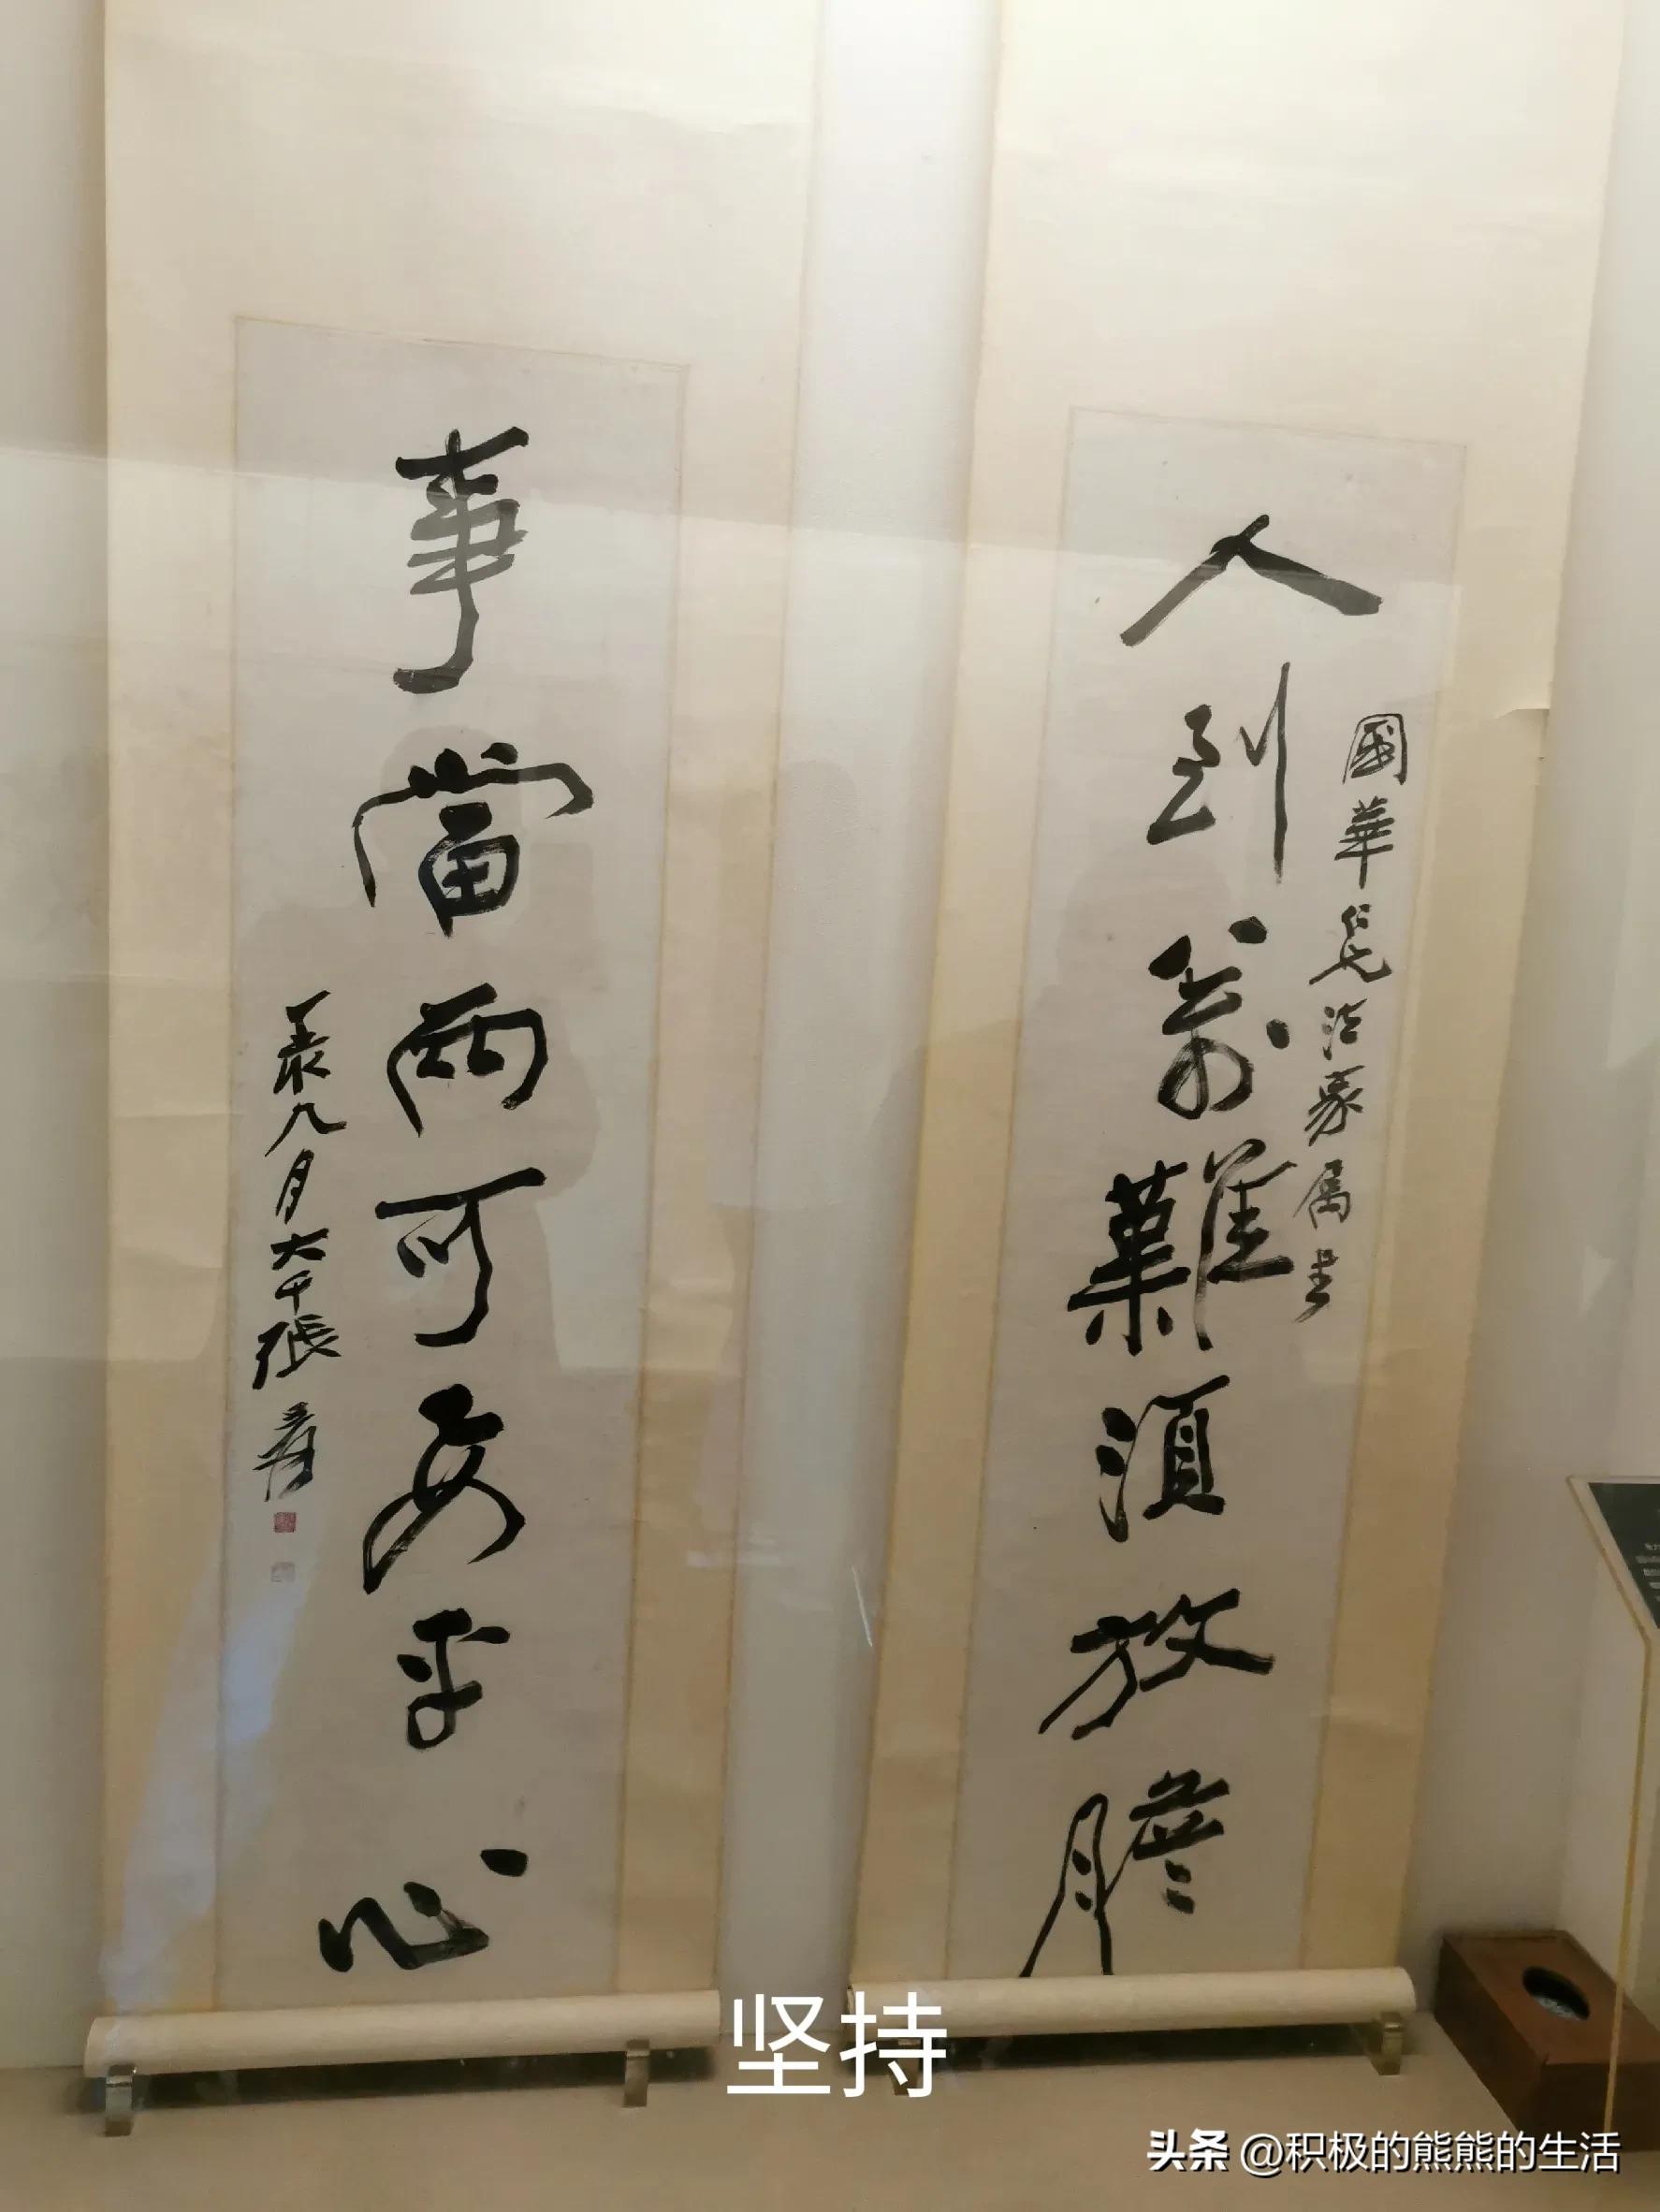 人到萬難須放膽
國華仁兄法家屬書
事當兩可要平心
九月大千張爰
坚持
头条 @积极的熊熊的生活